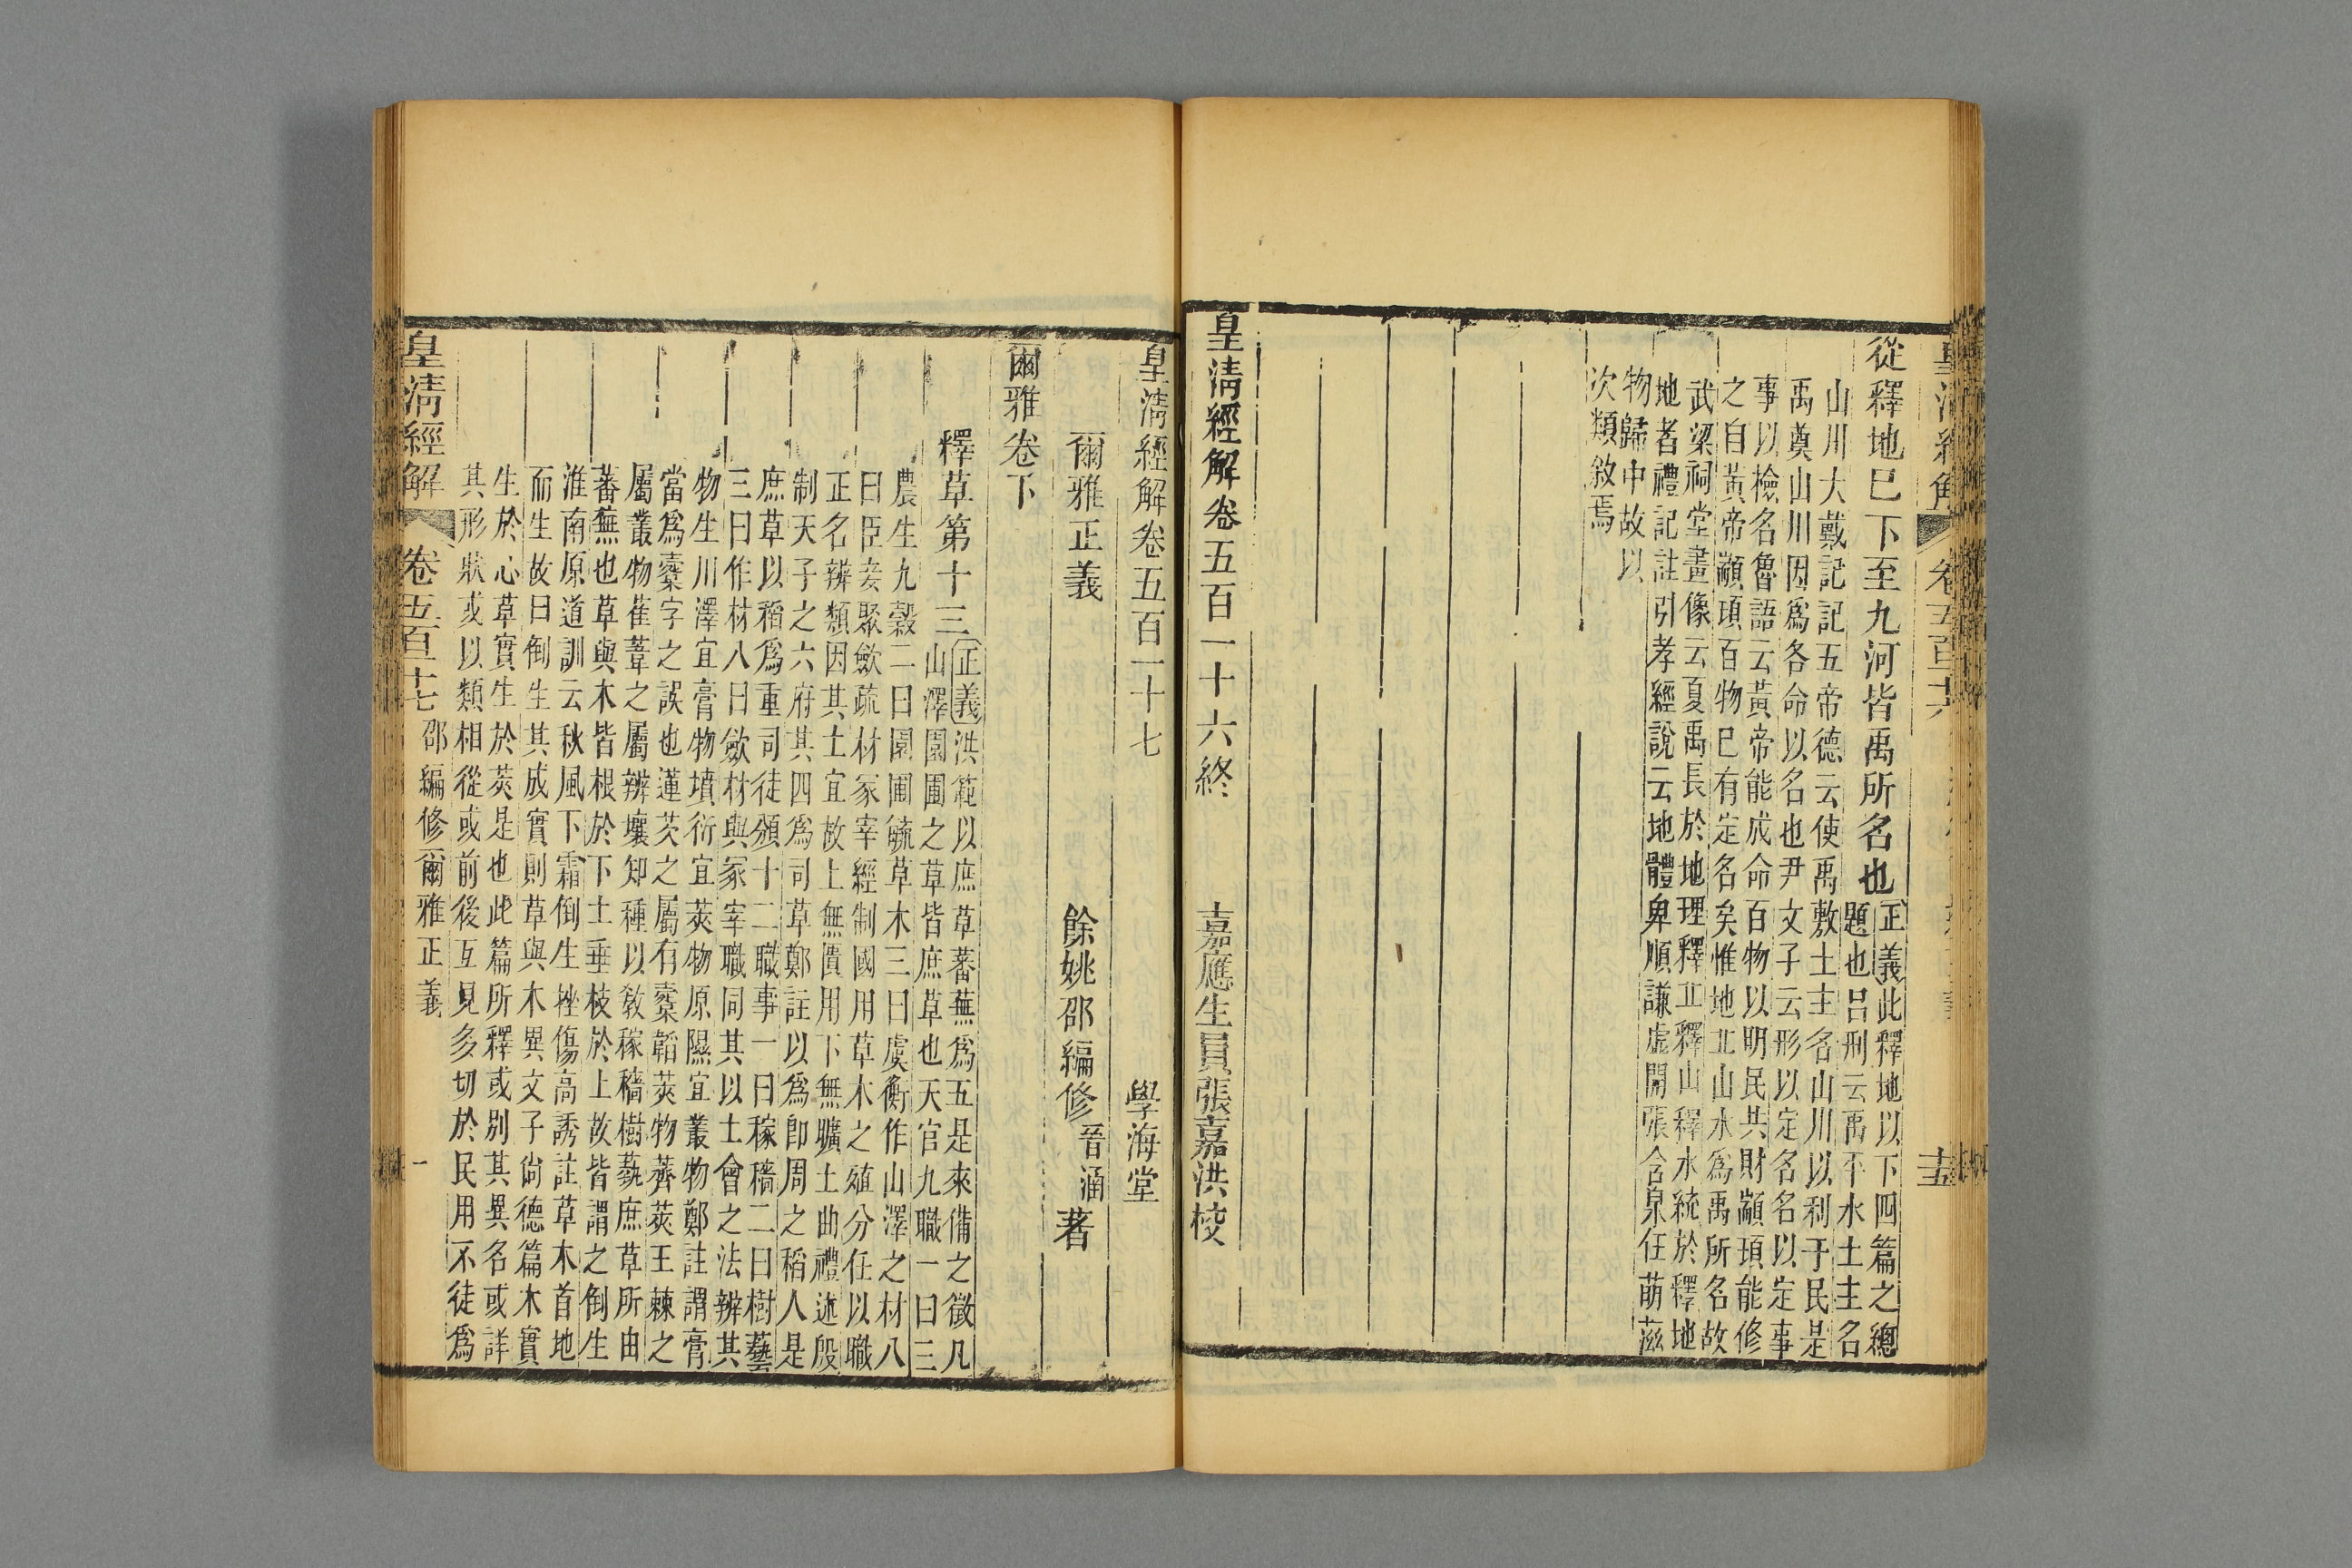 從釋地已下至九河皆禹所名也正義此釋地以下四篇之總
題也呂刑云禹平水土主名
山川大戴記記五帝德云使禹敷土主名山川以利于民是
禹奠山川因爲各命以名也尹文子云形以定名名以定事
事以檢名魯語云黃帝能成命百物以明民共財顓頊能修
之自黃帝顓頊百物已有定名矣惟地丘山水爲禹所名故
武梁祠堂畫像云夏禹長於地理釋丘釋山釋水統於釋地
地者禮記註引孝經說云地體卑順謙虛開張含泉任萌滋
物歸中故以
次類敘焉
皇清經解卷五百一十六終
嘉應生員張嘉洪校
皇清經解卷五百一十七
學海堂
爾雅正義
餘姚邵編修晉涵著
爾雅卷下
釋草第十三正義洪範以庶草蕃蕪爲五是來備之徵凡
山澤園圃之草皆庶草也天官九職一曰三
農生九穀二曰園圃毓草木三曰虞衡作山澤之材八
曰臣妾聚斂疏材冢宰經制國用草木之殖分任以職
正名辨類因其土宜故上無匱用下無曠土曲禮述殷
制天子之六府其四爲司草鄭註以爲卽周之稻人是
庶草以稻爲重司徒頒十二職事一曰稼穡二曰樹藝
三曰作材八曰斂材與冢宰職同其以土會之法辨其
物生川澤宜膏物墳衍宜莢物原隰宜叢物鄭註謂膏
當爲櫜字之誤也蓮芡之屬有櫜韜莢物薺莢王棘之
屬叢物萑葦之屬辨壤知種以敎稼穡樹蓺庶草所由
蕃蕪也草與木皆根於下土垂枝於上故皆謂之倒生
淮南原道訓云秋風下霜倒生挫傷高誘註草木首地
而生故曰倒生其成實則草與木異文子尙德篇木實
生於心草實生於莢是也此篇所釋或別其異名或詳
其形狀或以類相從或前後互見多切於民用不徒爲
皇清經解
卷五百十七
邵編修爾雅正義
一